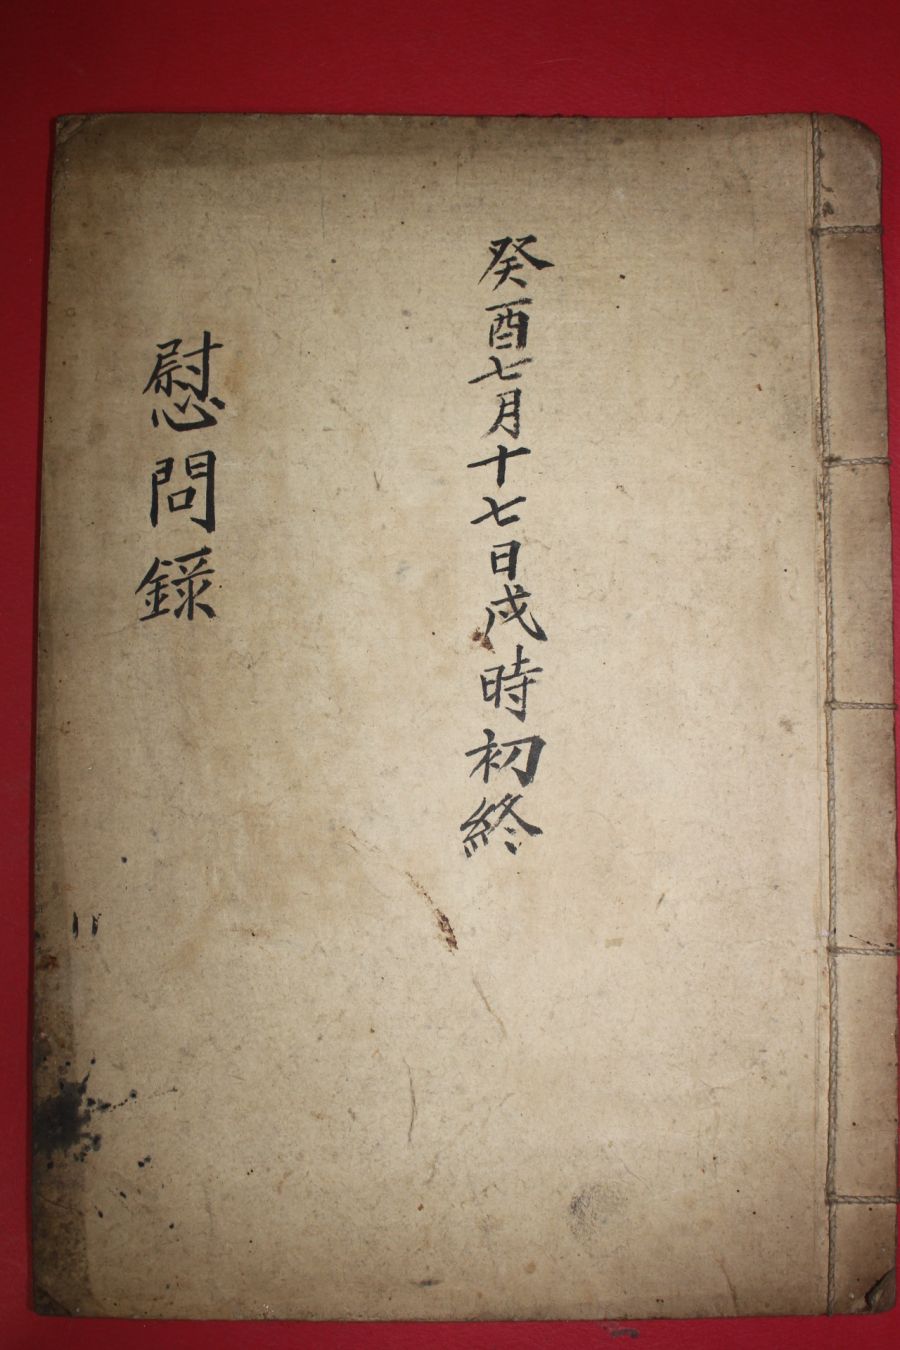 癸酉七月十七日戌時初終
慰問錄